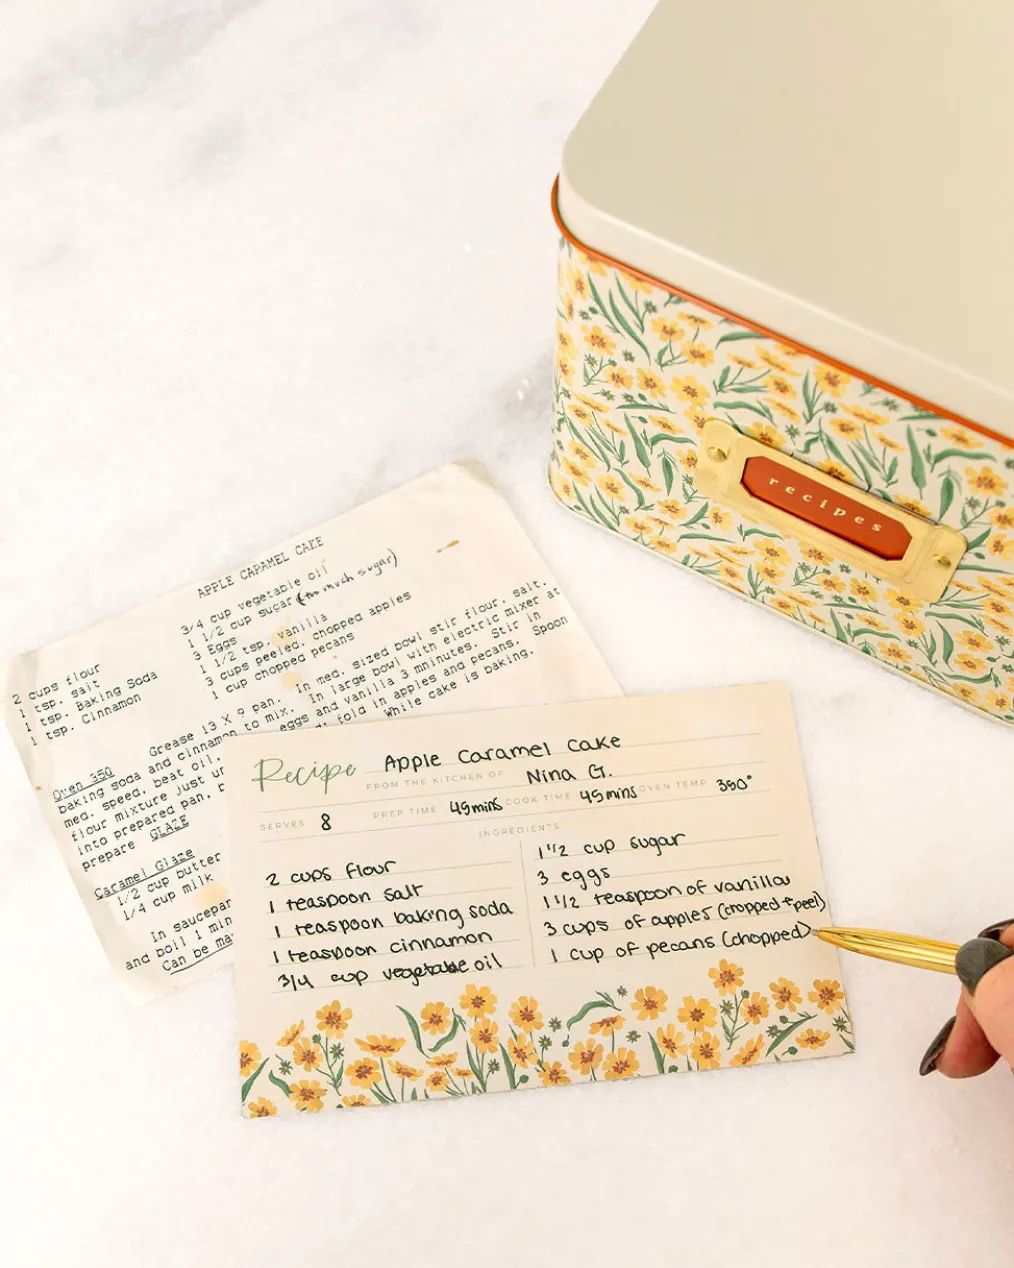 recipes
APPLE CARAMEL CAKE
3/4 cup vegetable oil
1 1/2 cup sugar (too much sugar)
3 Eggs
1 1/2 tsp. vanilla
3 cups peeled, chopped apples
1 cup chopped pecans
2 cups flour
1 tsp. salt
1 tsp. Baking Soda
1 tsp. Cinnamon
Oven 350 Grease 13 X 9 pan. In med. sized bowl stir flour, salt,
baking soda and cinnamon to mix. In large bowl with electric mixer at
med. speed, beat oil, eggs and vanilla 3 mninutes. Stir in
flour mixture just un fold in apples and pecans. Spoon
into prepared pan. While cake is baking,
prepare GLAZE
Caramel Glaze
1/2 cup butter
1/4 cup milk
In saucepan
and boil 1 min
Can be ma
Recipe Apple Caramel Cake
FROM THE KITCHEN OF Nina G.
SERVES 8 PREP TIME 45mins COOK TIME 45mins OVEN TEMP 350°
INGREDIENTS
2 cups flour
1 teaspoon salt
1 teaspoon baking soda
1 teaspoon cinnamon
3/4 cup vegetable oil
1 1/2 cup sugar
3 eggs
1 1/2 teaspoon of vanilla
3 cups of apples (cropped + peel)
1 cup of pecans (chopped)